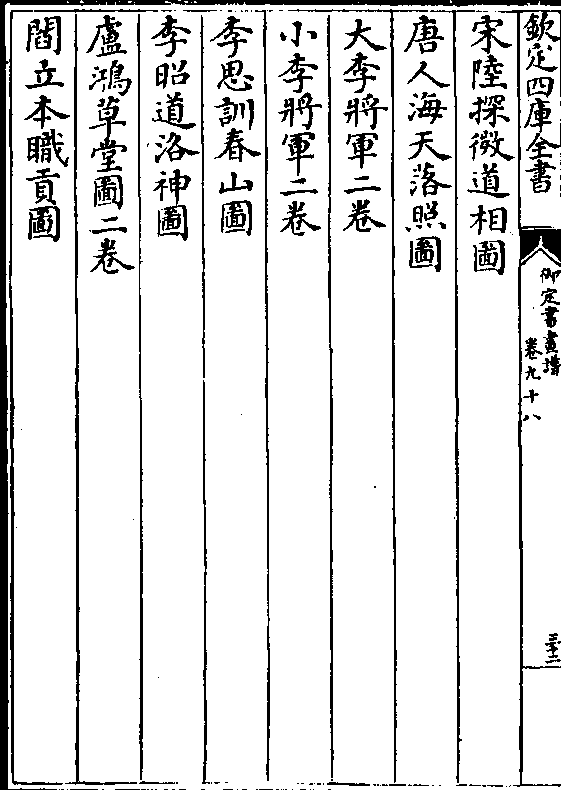 欽定四庫全書
御定書畫譜
卷九十八
三十二
宋陸探微道相圖
唐人海天落照圖
大李將軍二卷
小李將軍二卷
李思訓春山圖
李昭道洛神圖
盧鴻草堂圖二卷
閻立本職貢圖